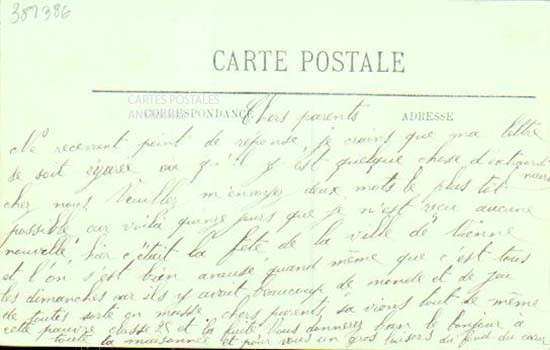 387386
CARTE POSTALE
CARTES POSTALES
CORRESPONDANCE
ADRESSE
Chers parents
Ne recevant point de réponse, je crains que ma lettre
se soit égarée ou qu'il y est quelque chose d'extraordi
naire
chez nous. Veuillez m'envoyer deux mots le plus tôt
possible car voilà quinze jours que je n'est reçu aucune
nouvelle, hier c'était la fête de la ville de Vienne
et l'on s'est bien amusé quand même que c'est tous
les dimanches car ils y avait beaucoup de monde et de
de toutes sorte en masse chers parents, sa vions tout de même
cette pauvre classe et la fuite Vous donnerez bien le bonjour à
toute la maisonnée et pour vous un gros baisers du fond du cœur